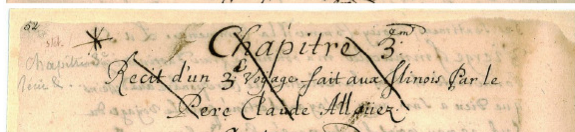 52
Chapitre 3.em
Recit d'un 3.e Voyage fait aux Ilinois Par le
Pere Claude Alloüez